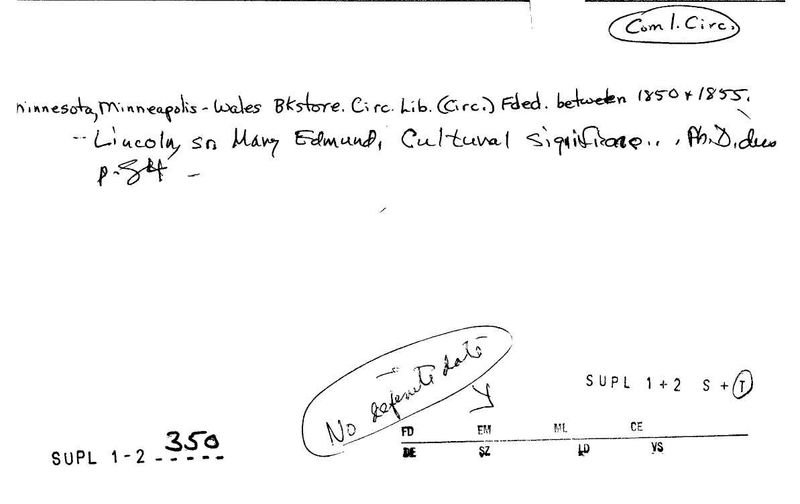 Com l. Circ.
Minnesota, Minneapolis - Wales Bkstore. Circ. Lib. (Circ.) Fded. between 1850 + 1855.
-- Lincoln, Sr. Mary Edmund, Cultural Significance... , Ph.D. diss
p. 34 -
No definite date
SUPL 1+2 S + T
FD EM ML CE
DE SZ LD VS
SUPL 1-2 - 350